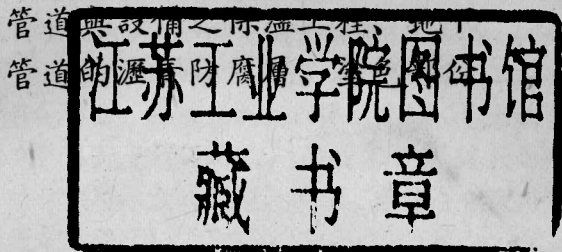 管道與設備之保溫工程、地下
管道的瀝青防腐層、塗色部份
江苏工业学院图书馆
藏书章